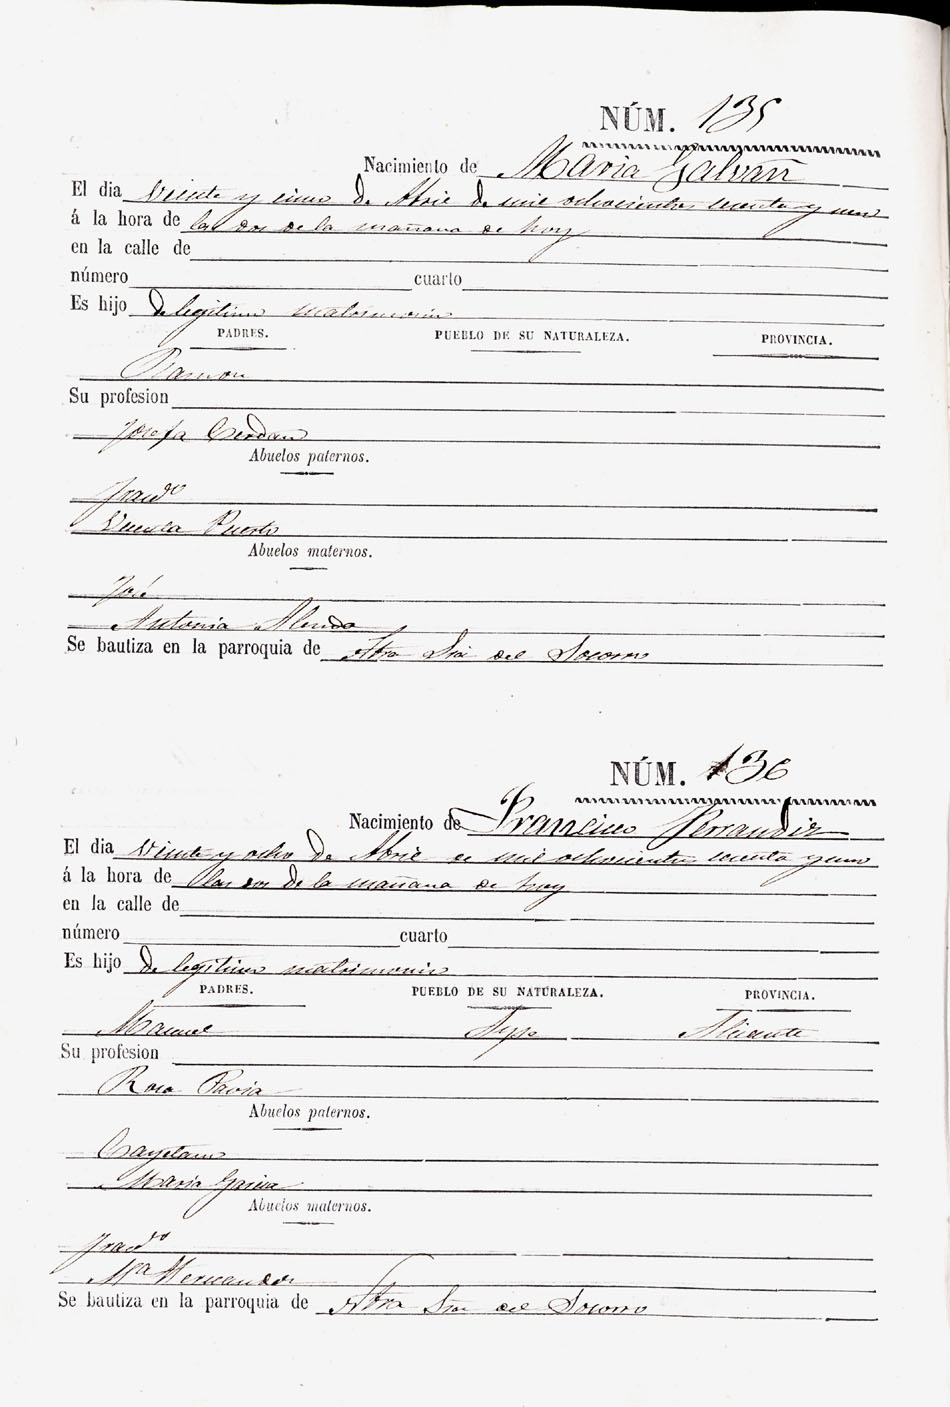 NÚM. 135
Nacimiento de Maria Galvañ
El dia veinte y cinco de Abril de mil ochocientos sesenta y uno
á la hora de las dos de la mañana de hoy
en la calle de
número cuarto
Es hijo de legitimo matrimonio
PADRES. PUEBLO DE SU NATURALEZA. PROVINCIA.
Ramon
Su profesion
Josefa Cerdan
Abuelos paternos.
Franco
Vicenta Puerto
Abuelos maternos.
José
Antonia Alenda
Se bautiza en la parroquia de Ntra Sra del Socorro
NÚM. 136
Nacimiento de Francisco Ferrandiz
El dia Veinte y ocho de Abril de mil ochocientos sesenta y uno
á la hora de las dos de la mañana de hoy
en la calle de
número cuarto
Es hijo de legitimo matrimonio
PADRES. PUEBLO DE SU NATURALEZA. PROVINCIA.
Manuel Aspe Alicante
Su profesion
Rosa Pavia
Abuelos paternos.
Cayetano
Maria Garcia
Abuelos maternos.
Franco
Ma Hernandez
Se bautiza en la parroquia de Ntra Sra del Socorro